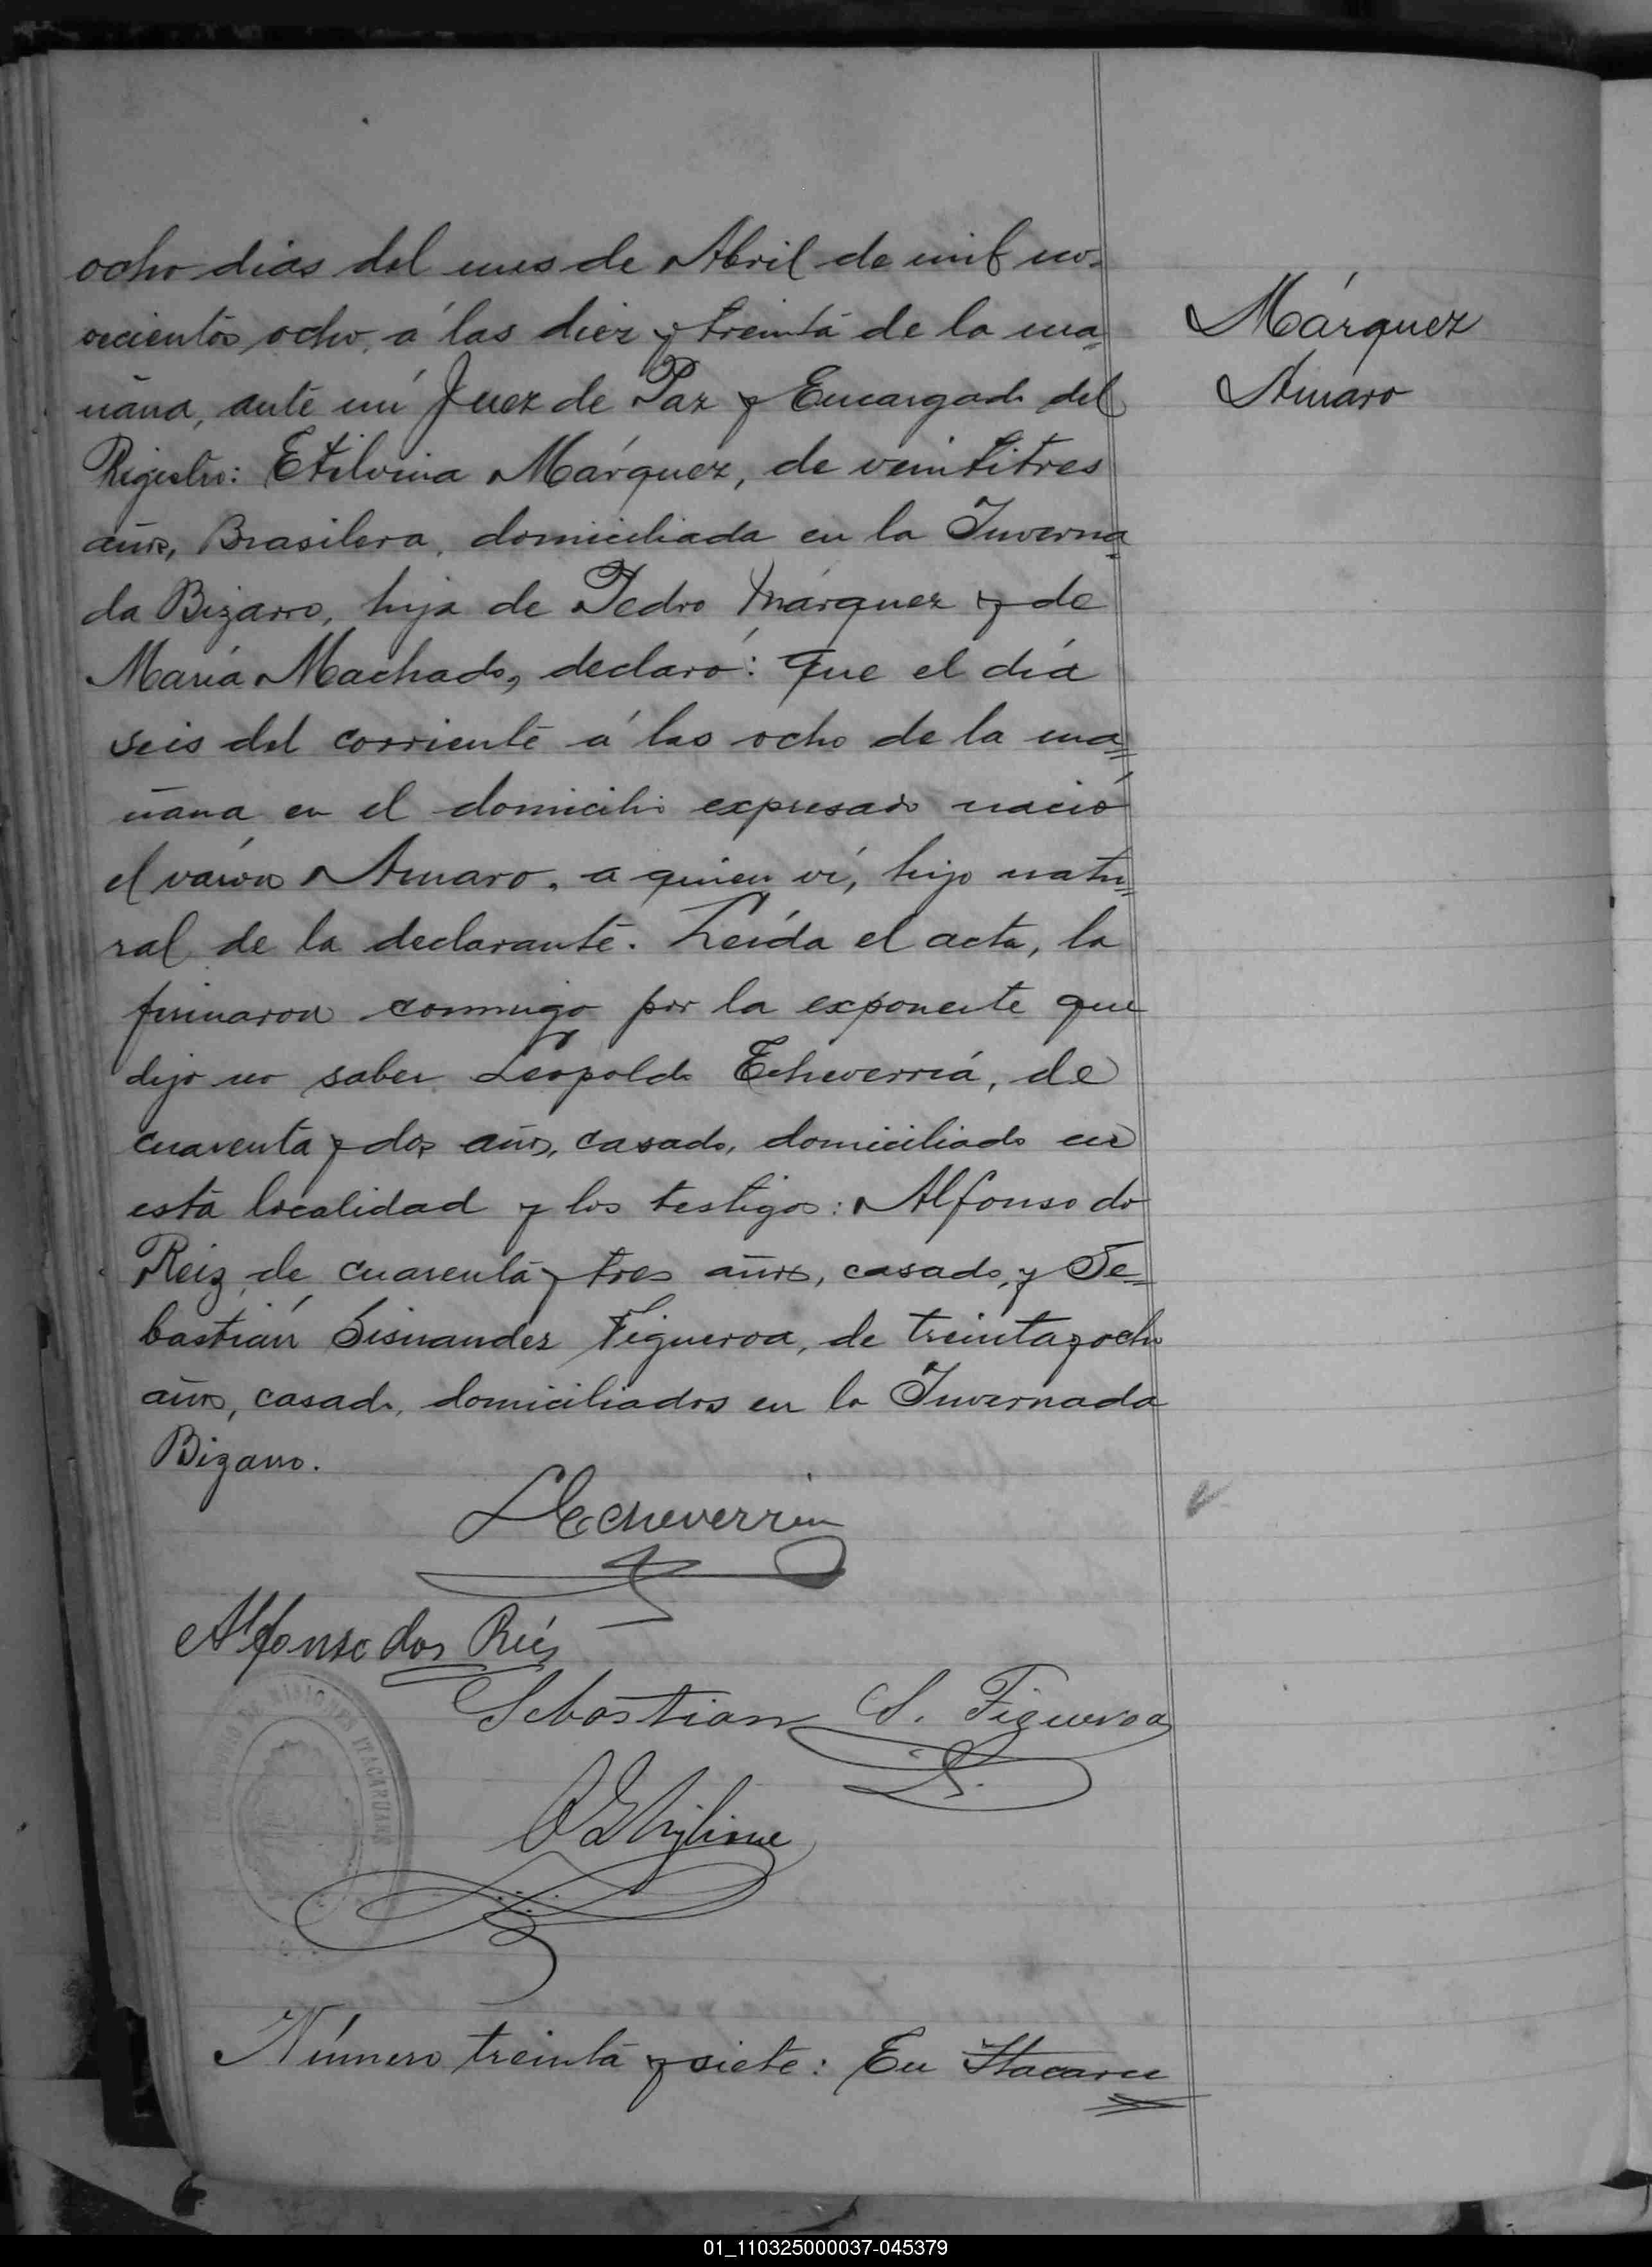 ocho dias del mes de Abril de mil no-
vecientos ocho, á las diez y treinta de la ma=
ñana, ante mí Juez de Paz y Encargado del
Registro: Etilvina Márquez, de veintitres
años, Brasilera, domiciliada en la Inverna=
da Bizarro, hija de Pedro Márquez y de
María Machado, declaró: Que el día
seis del corriente á las ocho de la ma=
ñana en el domicilio expresado nació
el varón Amaro, a quien ví, hijo natu=
ral de la declarante. Leída el acta, la
firmaron conmigo por la exponente que
dijo no saber Leopoldo Echeverría, de
cuarenta y dos años, casado, domiciliado en
esta localidad y los testigos: Alfonso do
Reiz, de cuarenta y tres años, casado, y Se=
bastián Sisnandez Figueroa, de treinta y ocho
años, casado, domiciliados en la Invernada
Bizarro.
Márquez
Amaro
LEcheverria
Alfonso dos Reis
Sebastian S. Figueroa
DE MISIONES ITACARUARE
Número treinta y siete: En Itacaru=
01_110325000037-045379